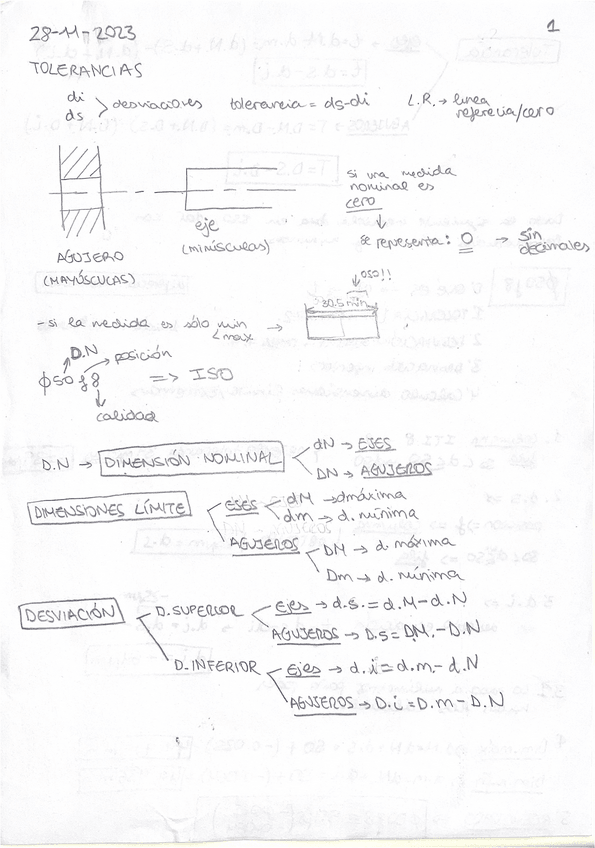 28-11-2023
1
TOLERANCIAS
di
ds > desviaciones tolerancia = ds-di L.R. → línea referencia/cero
si una medida
nominal es
cero
eje
(minúsculas)
se representa: 0 → sin decimales
AGUJERO
(MAYÚSCULAS)
↓ OSO!!
30.5 min
- si la medida es sólo min
max →
D.N
posición
ϕ50 f 8 => ISO
calidad
D.N → DIMENSIÓN NOMINAL
dN → EJES
DN → AGUJEROS
DIMENSIONES LÍMITE
EJES
dM → dmáxima
dm → d. mínima
AGUJEROS
DM → d. máxima
Dm → d. mínima
DESVIACIÓN
D.SUPERIOR
Ejes → d.s. = d.M-d.N
AGUJEROS → D.s = DM.-D.N
D.INFERIOR
Ejes → d.i = d.m.- d.N
AGUJEROS → D.i = D.m - D.N